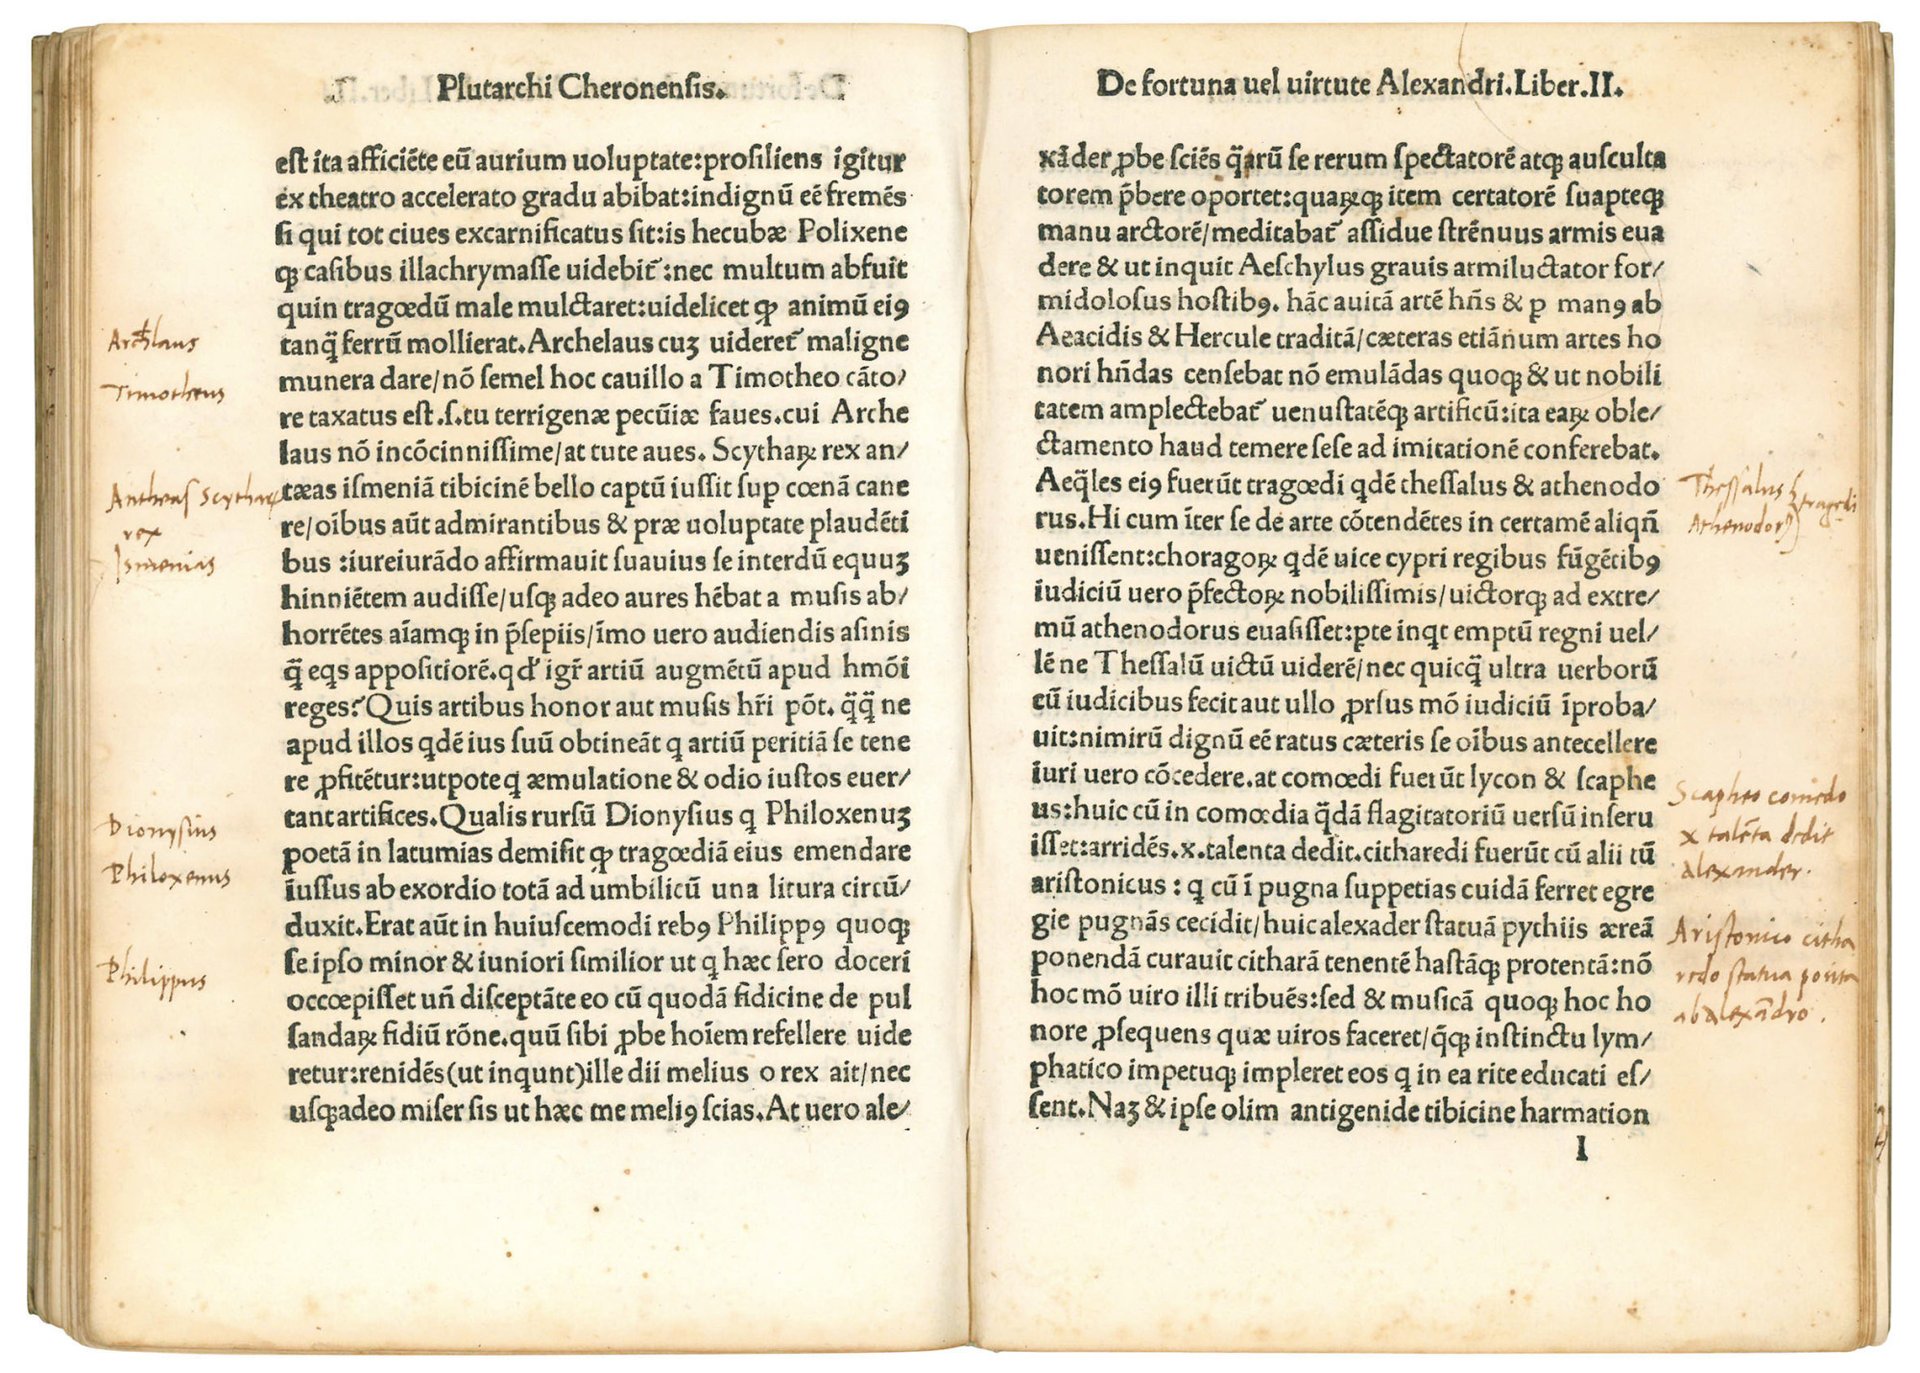 Plutarchi Cheronensis.
est ita afficiēte eū aurium uoluptate:prosiliens igitur
ex theatro accelerato gradu abibat:indignū eē fremēs
si qui tot ciues excarnificatus sit:is hecubæ Polixene
qꝫ casibus illachrymasse uidebit᷑:nec multum abfuit
quin tragœdū male mulctaret:uidelicet ꝙ animū eiꝰ
tanq̄ ferrū mollierat.Archelaus cuꝫ uideret᷑ maligne
munera dare/nō semel hoc cauillo a Timotheo cāto/
re taxatus est.s.tu terrigenæ pecūiæ faues.cui Arche
laus nō incōcinnissime/at tute aues. Scythaꝝ rex an/
tæas ismeniā tibicinē bello captū iussit sup cœnā cane
re/oībus aūt admirantibus & præ uoluptate plaudēti
bus :iureiurādo affirmauit suauius se interdū equuꝫ
hinniētem audisse/usqꝫ adeo aures hēbat a musis ab/
horrētes aīamqꝫ in p̄sepiis/īmo uero audiendis asinis
q̄ eqs appositiorē.qd' igr̄ artiū augmētū apud hmōi
reges? Quis artibus honor aut musis hr̄i pōt. q̄q̄ ne
apud illos qdē ius suū obtineāt q artiū peritiā se tene
re ꝓfitētur:utpote q æmulatione & odio iustos euer/
tant artifices.Qualis rursū Dionysius q Philoxenuꝫ
poetā in latumias demisit ꝙ tragœdiā eius emendare
iussus ab exordio totā ad umbilicū una litura circū/
duxit.Erat aūt in huiuscemodi rebꝰ Philippꝰ quoqꝫ
se ipso minor & iuniori similior ut q hæc sero doceri
occœpisset uñ disceptāte eo cū quodā fidicine de pul
sandaꝝ fidiū rōne.quū sibi ꝓbe hoīem refellere uide
retur:renidēs(ut inqunt)ille dii melius o rex ait/nec
usqꝫadeo miser sis ut hæc me meliꝰ scias.At uero ale/
Archlaus
Timotheus
Antheas Scythaꝝ
rex
Ismenias
Dionysius
Philoxenus
Philippus
De fortuna uel uirtute Alexandri.Liber.II.
xāder ꝓbe sciēs q̄arū se rerum spectatorē atqꝫ ausculta
torem p̄bere oportet:quaꝝqꝫ item certatorē suapteqꝫ
manu arctorē/meditabat᷑ assidue strēnuus armis eua
dere & ut inquit Aeschylus grauis armiluctator for/
midolosus hostibꝰ. hāc auitā artē hñs & p manꝰ ab
Aeacidis & Hercule traditā/cæteras etiānum artes ho
nori hñdas censebat nō emulādas quoqꝫ & ut nobili
tatem amplectebat᷑ uenustatēqꝫ artificū:ita eaꝝ oble/
ctamento haud temere sese ad imitationē conferebat.
Aeq̄les eiꝰ fuerūt tragœdi qdē thessalus & athenodo
rus.Hi cum īter se de arte cōtendētes in certamē aliqñ
uenissent:choragoꝝ qdē uice cypri regibus fūgētibꝰ
iudiciū uero p̄fectoꝝ nobilissimis/uictorqꝫ ad extre/
mū athenodorus euasisset:ꝑte inqt emptū regni uel/
lē ne Thessalū uictū uiderē/nec quicq̄ ultra uerborū
cū iudicibus fecit aut ullo ꝓrsus mō iudiciū īproba/
uit:nimirū dignū eē ratus cæteris se oībus antecellere
iuri uero cōcedere.at comœdi fuerūt lycon & scaphe
us:huic cū in comœdia q̄dā flagitatoriū uersū inseru
isset:arridēs.x.talenta dedit.citharedi fuerūt cū alii tū
aristonicus : q cū ī pugna suppetias cuidā ferret egre
gie pugnās cecidit/huic alexader statuā pythiis æreā
ponendā curauit citharā tenentē hastāqꝫ protentā:nō
hoc mō uiro illi tribuēs:sed & musicā quoqꝫ hoc ho
nore ꝓsequens quæ uiros faceret/q̄qꝫ instinctu lym/
phatico impetuqꝫ impleret eos q in ea rite educati es/
sent.Naꝫ & ipse olim antigenide tibicine harmation
I
Thessalus
Athenodorꝰ
tragedi
Scapheo comedo
x talēta dedit
alexander.
Aristonico citha
redo statua posita
ab alexādro.